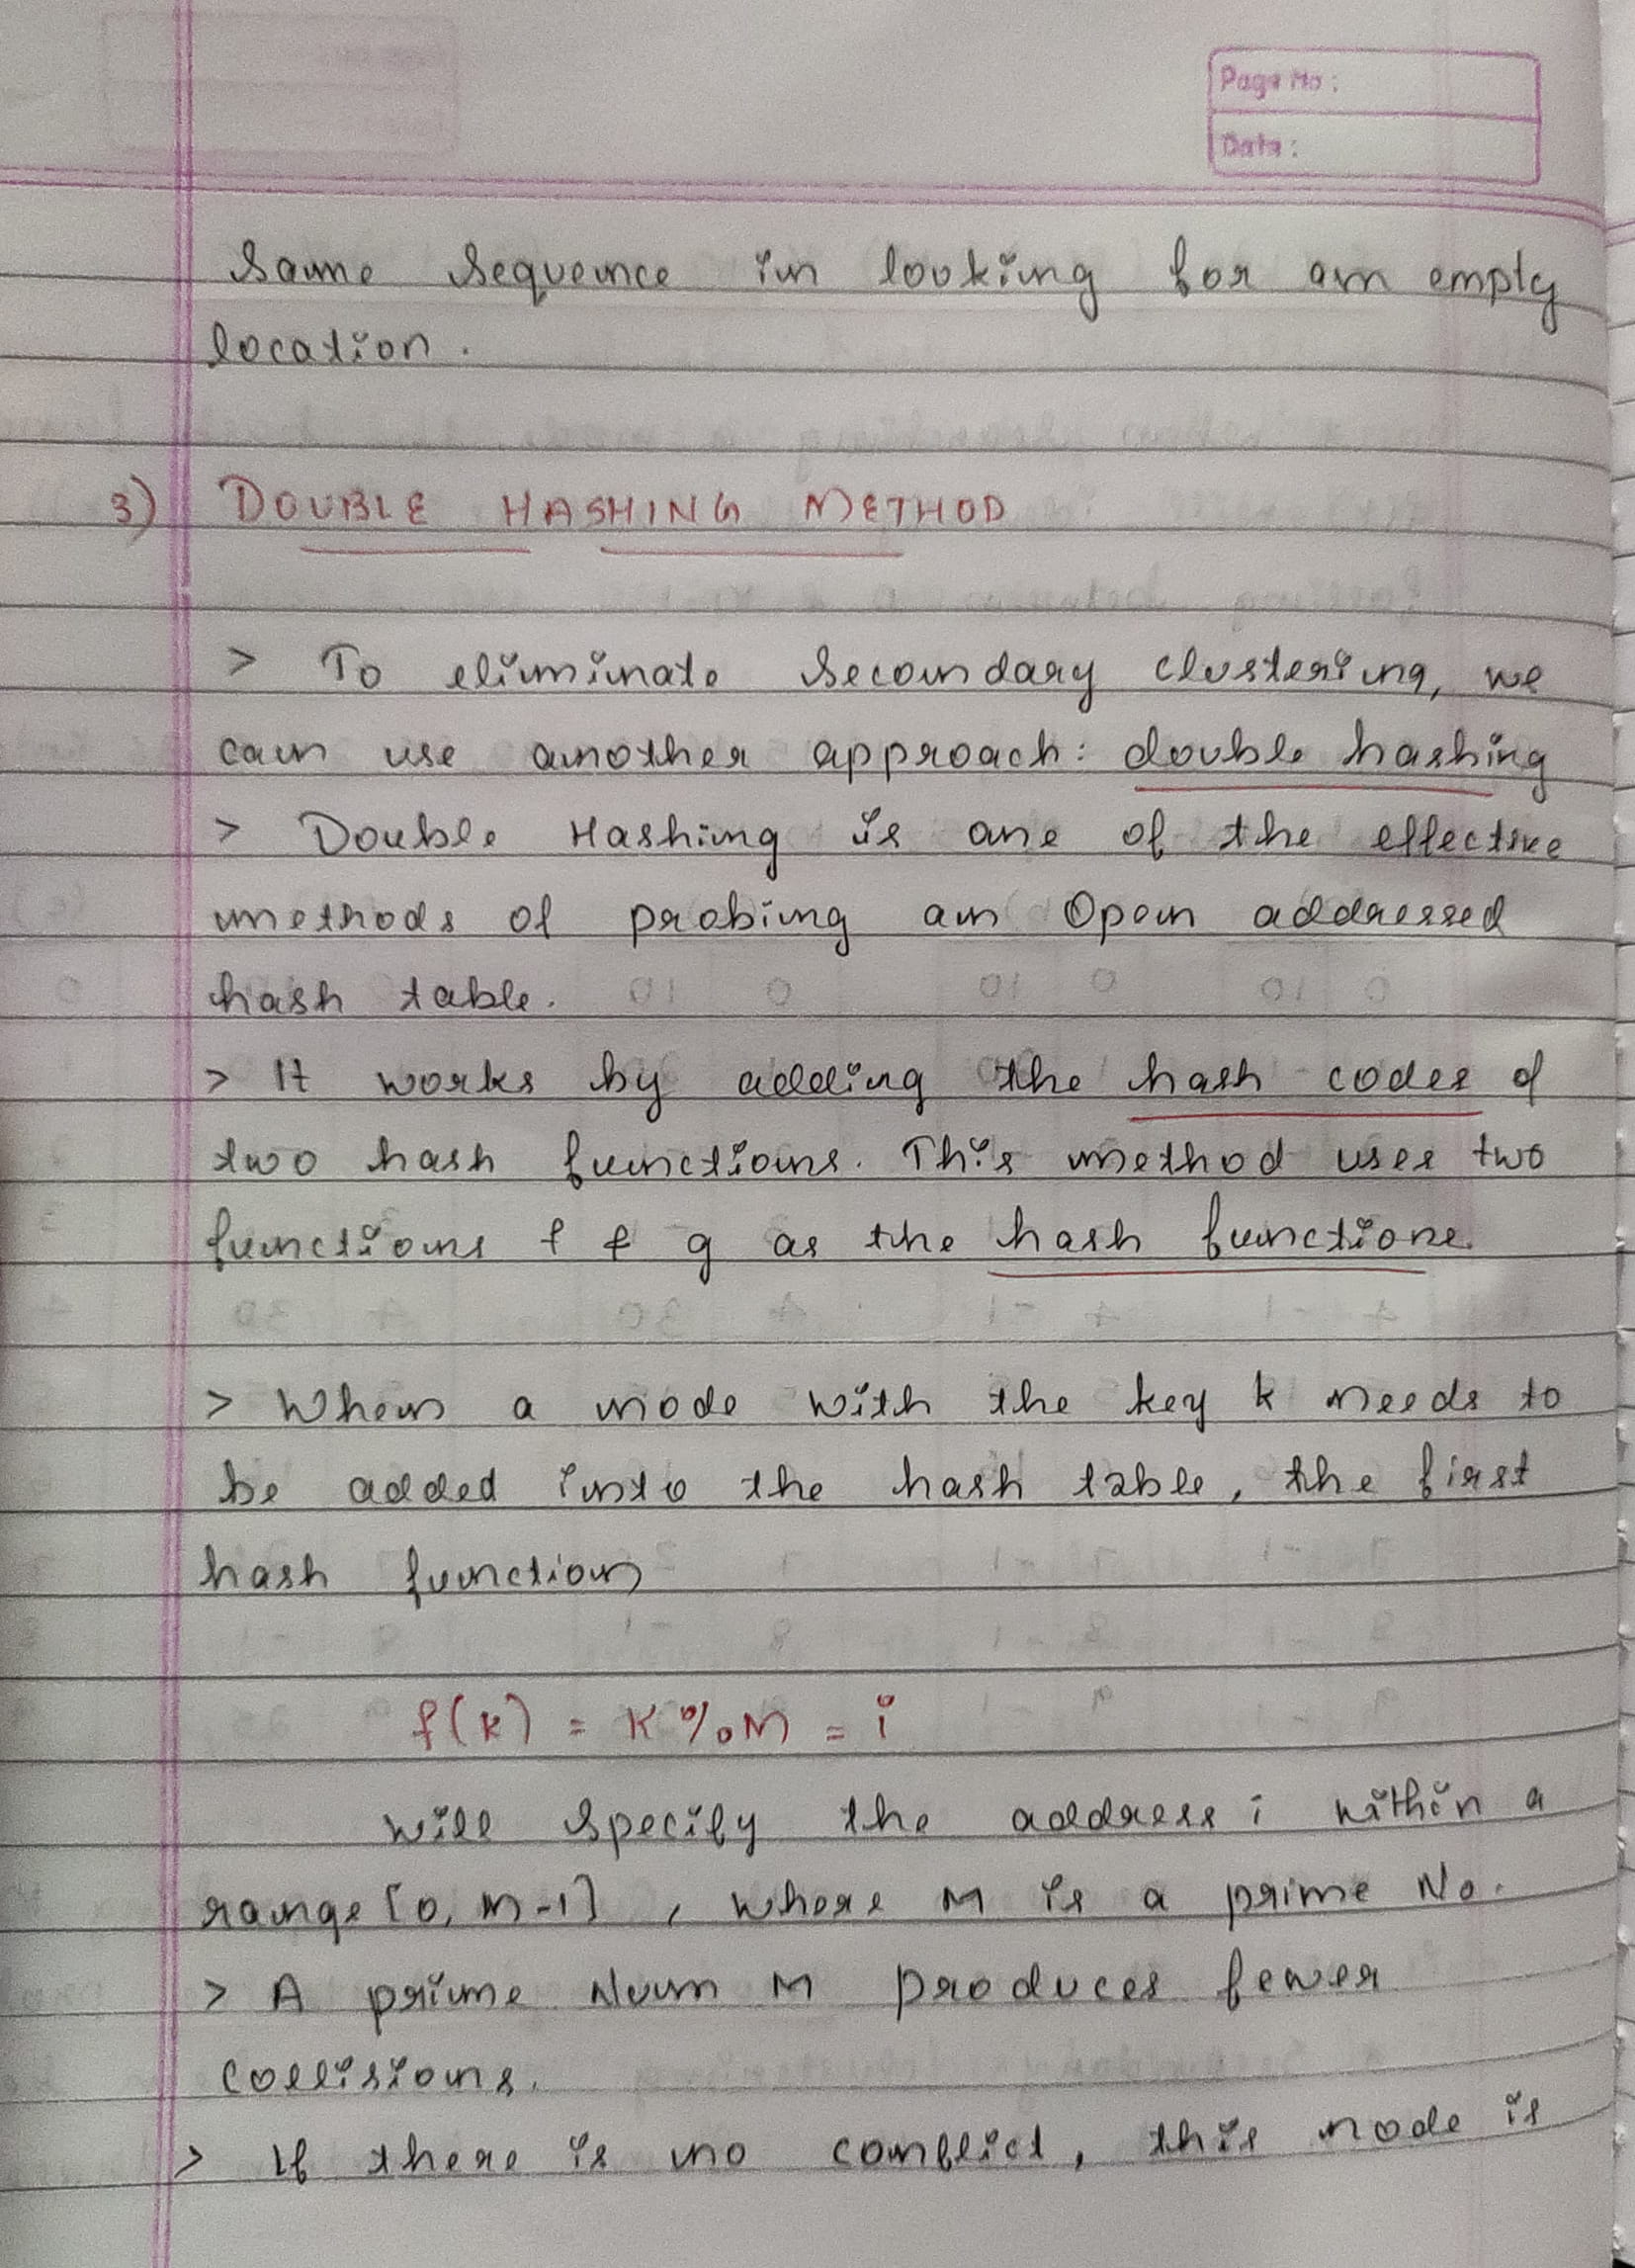 Page No:
Date:
Same sequence in looking for an empty
location.
3) DOUBLE HASHING METHOD
> To eliminate Secondary clustering, we
can use another approach: double hashing
> Double Hashing is one of the effective
methods of probing an Open addressed
hash table.
> It works by adding the hash codes of
two hash functions. This method uses two
functions f & g as the hash functions.
> When a node with the key k needs to
be added into the hash table, the first
hash function
f(k) = K % M = i
will specify the address i within a
range [0, M-1], where M is a prime No.
> A prime Num M produces fewer
collisions.
> If there is no conflict, this node is